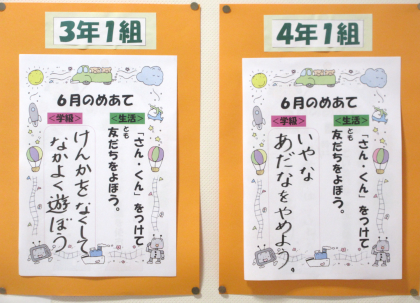 3年1組
6月のめあて
<生活>
「さん・くん」をつけて
友だちをよぼう。
とも
<学級>
けんかをなくして
なかよく遊ぼう
4年1組
6月のめあて
<生活>
「さん・くん」をつけて
友だちをよぼう。
とも
<学級>
いやな
あだなをやめよう。